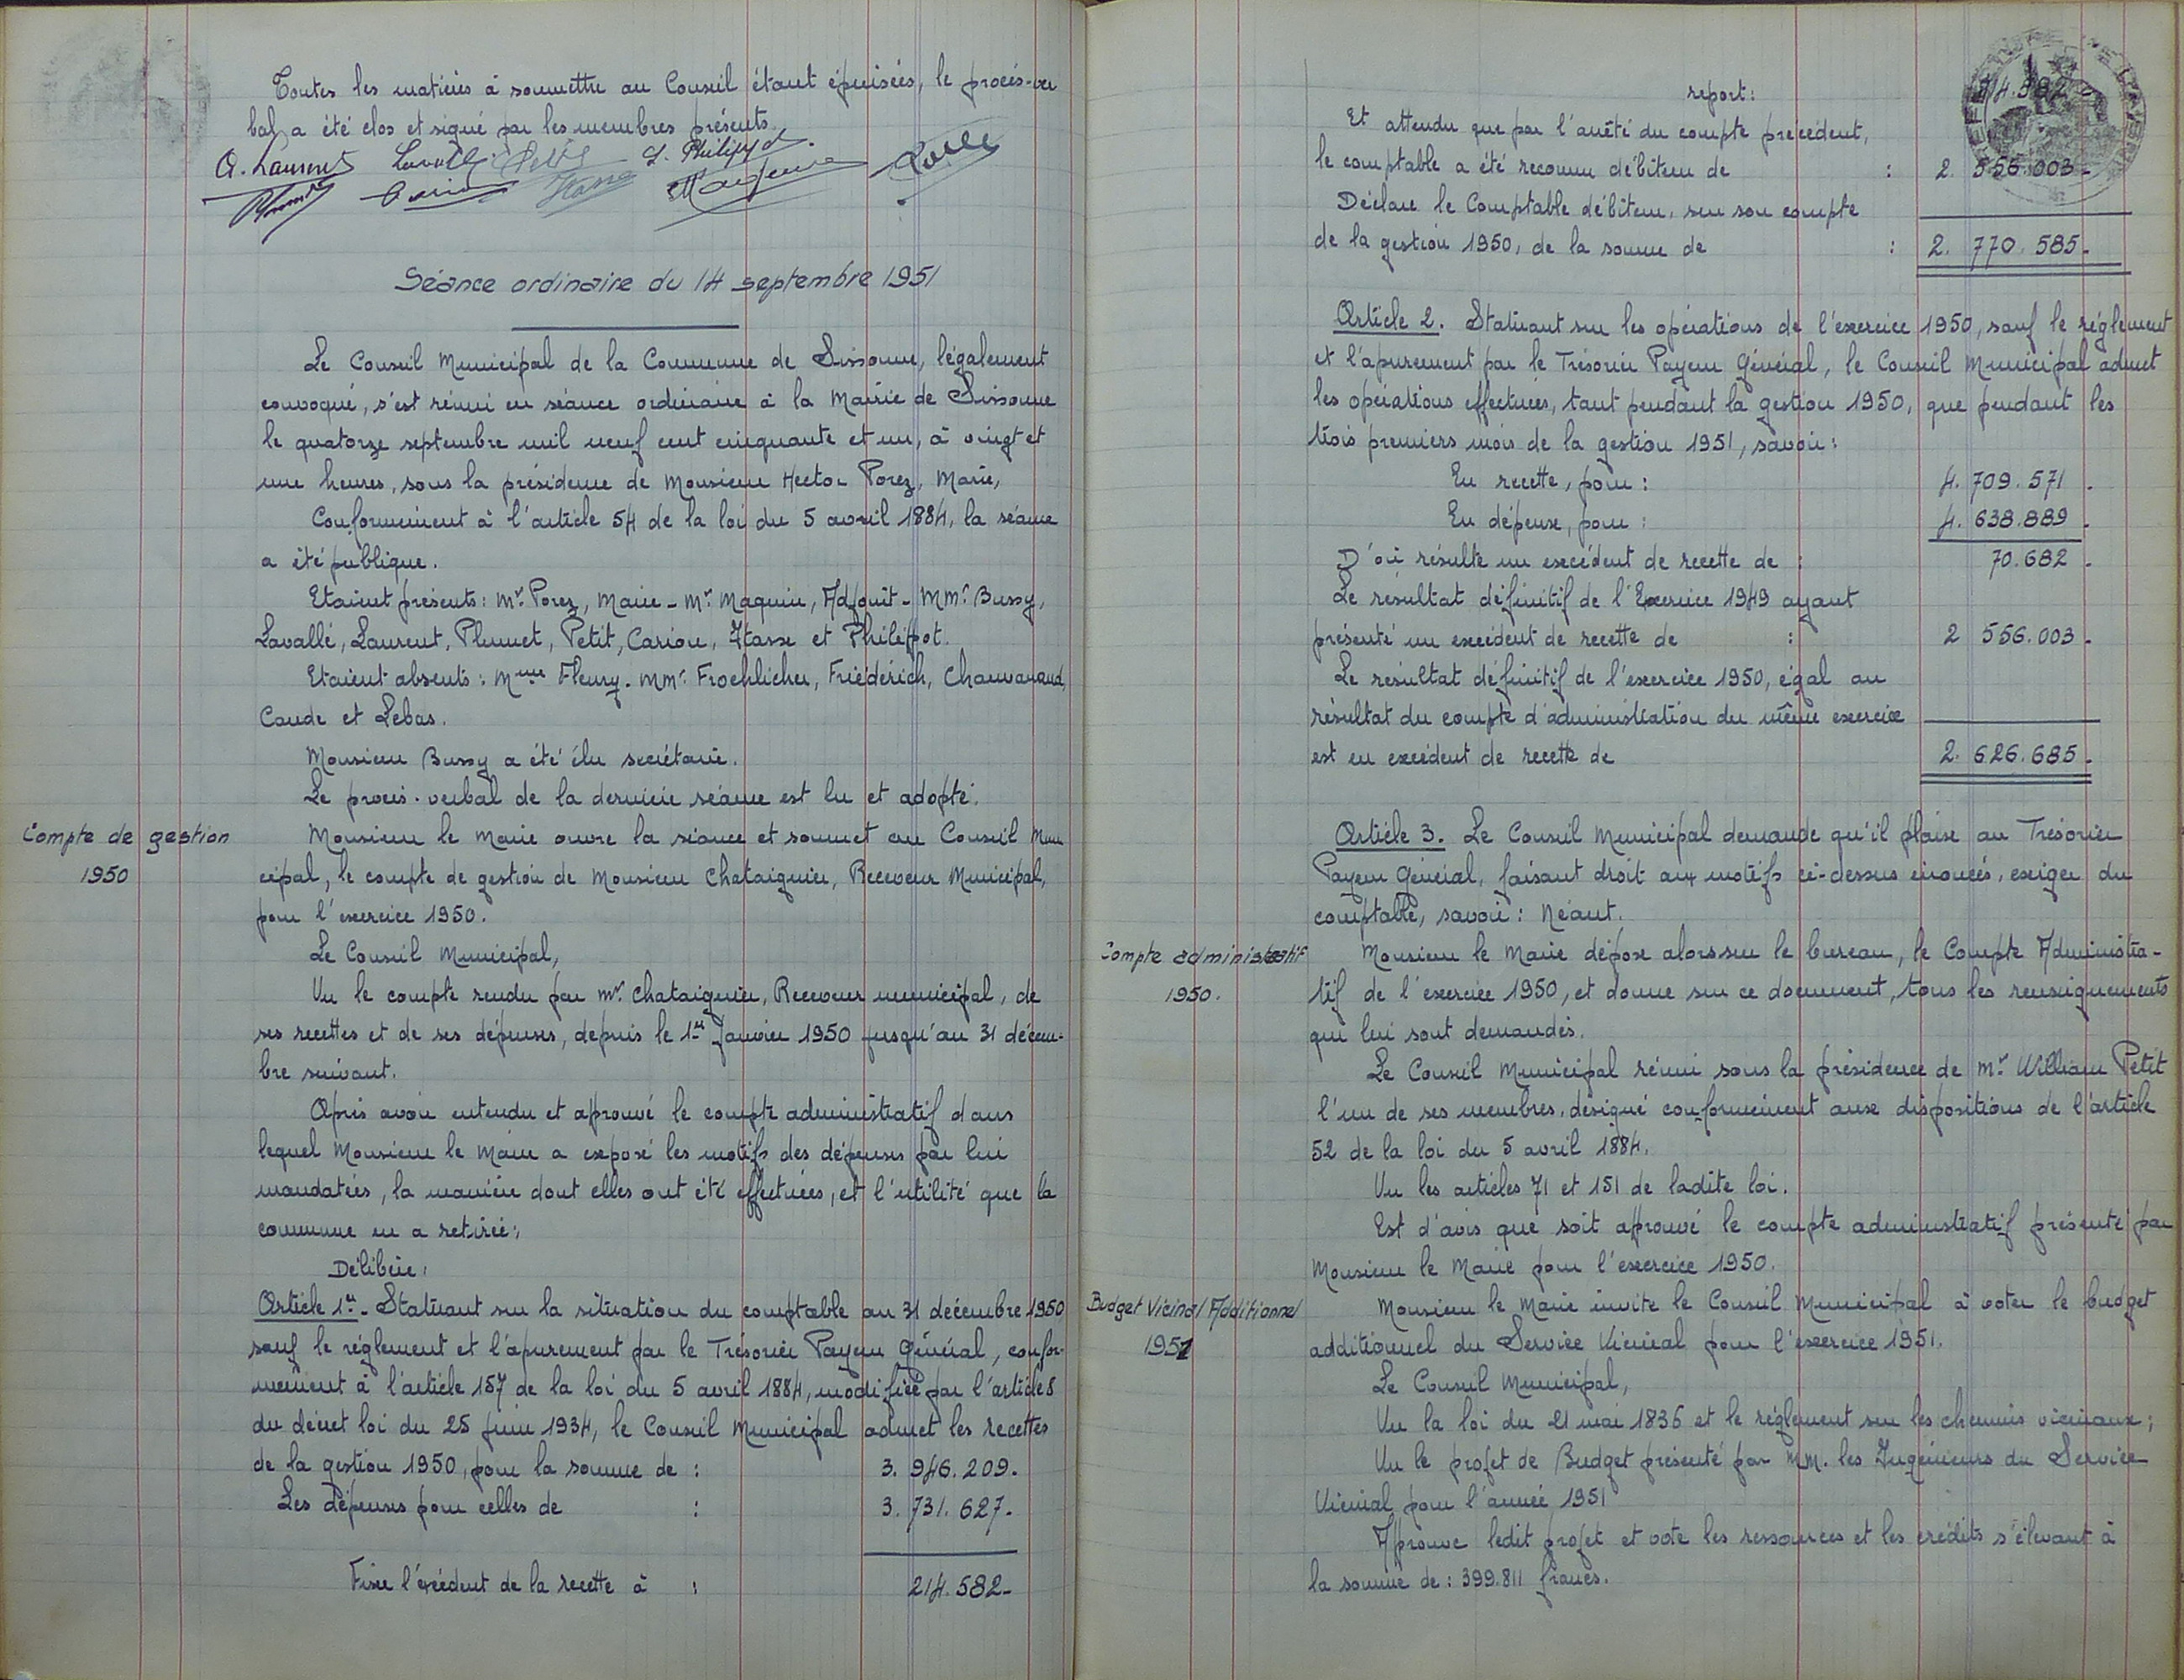 Toutes les matières à soumettre au Conseil étant épuisées, le procès-ver
bal a été clos et signé par les membres présents.
A. Laurent Lavallé Petit J. Philippot
Séance ordinaire du 14 septembre 1951
Le Conseil Municipal de la Commune de Sissonne, légalement
convoqué, s'est réuni en séance ordinaire à la Mairie de Sissonne
le quatorze septembre mil neuf cent cinquante et un, à vingt et
une heures, sous la présidence de Monsieur Hector Porez, Maire,
Conformément à l'article 54 de la loi du 5 avril 1884, la séance
a été publique.
Etaient présents : Mr. Porez, Maire - Mr. Maquin, Adjoint - MMrs Bussy,
Lavallé, Laurent, Plumet, Petit, Cariou, Itasse et Philippot.
Etaient absents : Mme Fleury. MMrs Froehlicher, Friédérich, Chauvanaud,
Caude et Lebas.
Monsieur Bussy a été élu secrétaire.
Le procès-verbal de la dernière séance est lu et adopté.
Compte de gestion
1950
Monsieur le Maire ouvre la séance et soumet au Conseil Muni
cipal, le compte de gestion de Monsieur Chataignier, Receveur Municipal,
pour l'exercice 1950.
Le Conseil Municipal,
Vu le compte rendu par Mr. Chataignier, Receveur municipal, de
ses recettes et de ses dépenses, depuis le 1er Janvier 1950 jusqu'au 31 décem-
bre suivant.
Après avoir entendu et approuvé le compte administratif dans
lequel Monsieur le Maire a exposé les motifs des dépenses par lui
mandatées, la manière dont elles ont été effectuées, et l'utilité que la
commune en a retirée ;
Délibère :
Article 1er - Statuant sur la situation du comptable au 31 décembre 1950
sauf le réglement et l'apurement par le Trésorier Payeur Général, confor-
mément à l'article 157 de la loi du 5 avril 1884, modifiée par l'article 8
du décret loi du 25 juin 1934, le Conseil Municipal admet les recettes
de la gestion 1950, pour la somme de : 3. 946. 209.
Les dépenses pour celles de : 3. 731. 627.
Fixe l'excédent de la recette à : 214. 582 -
report : 214.582 -
Et attendu que par l'arrêté du compte précédent,
le comptable a été reconnu débiteur de : 2. 556.003 -
Déclare le Comptable débiteur, sur son compte
de la gestion 1950, de la somme de : 2. 770. 585 -
Article 2. Statuant sur les opérations de l'exercice 1950, sauf le réglement
et l'apurement par le Trésorier Payeur Général, le Conseil Municipal admet
les opérations effectuées, tant pendant la gestion 1950, que pendant les
trois premiers mois de la gestion 1951, savoir :
En recette, pour : 4. 709. 571 .
En dépense, pour : 4. 638.889 .
D'où résulte un excédent de recette de : 70.682 .
Le résultat définitif de l'Exercice 1949 ayant
présenté un excédent de recette de : 2 556.003 -
Le résultat définitif de l'exercice 1950, égal au
résultat du compte d'administration du même exercice
est en excédent de recette de 2. 626.685 -
Article 3. Le Conseil Municipal demande qu'il plaise au Trésorier
Payeur Général, faisant droit aux motifs ci-dessus énoncés, exiger du
comptable, savoir : Néant.
Compte administratif
1950.
Monsieur le Maire dépose alors sur le bureau, le Compte Administra-
tif de l'exercice 1950, et donne sur ce document, tous les renseignements
qui lui sont demandés.
Le Conseil Municipal réuni sous la présidence de Mr William Petit
l'un de ses membres, désigné conformément aux dispositions de l'article
52 de la loi du 5 avril 1884.
Vu les articles 71 et 151 de ladite loi.
Est d'avis que soit approuvé le compte administratif présenté par
Monsieur le Maire pour l'exercice 1950.
Budget Vicinal Additionnel
1951
Monsieur le Maire invite le Conseil Municipal à voter le budget
additionnel du Service Vicinal pour l'exercice 1951.
Le Conseil Municipal,
Vu la loi du 21 mai 1836 et le réglement sur les chemins vicinaux ;
Vu le projet de Budget présenté par MM. les Ingénieurs du Service
Vicinal pour l'année 1951
Approuve ledit projet et vote les ressources et les crédits s'élevant à
la somme de : 399.811 francs.